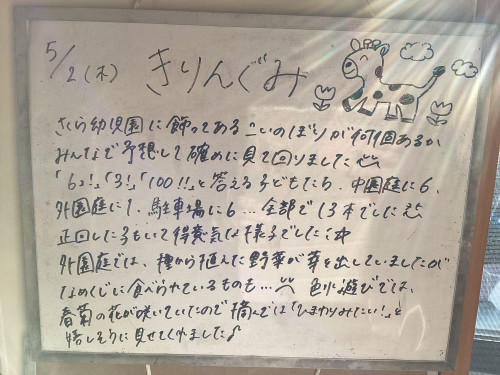 5/2(木) きりんぐみ
さくら幼児園に飾ってあるこいのぼりが何個あるか
みんなで予想して確めに見て回りました
「62!」「3!」「100!!」と答える子どもたち、中園庭に6、
外園庭に1、駐車場に6...全部で13本でした
正回した子もいて得意気な様子でした
外園庭では、種から植えた野菜が芽を出していましたが
なめくじに食べられているものも... 色水遊びでは、
春菊の花が咲いていたので摘んでは「ひまわりみたい!」と
嬉しそうに見せてくれました♪